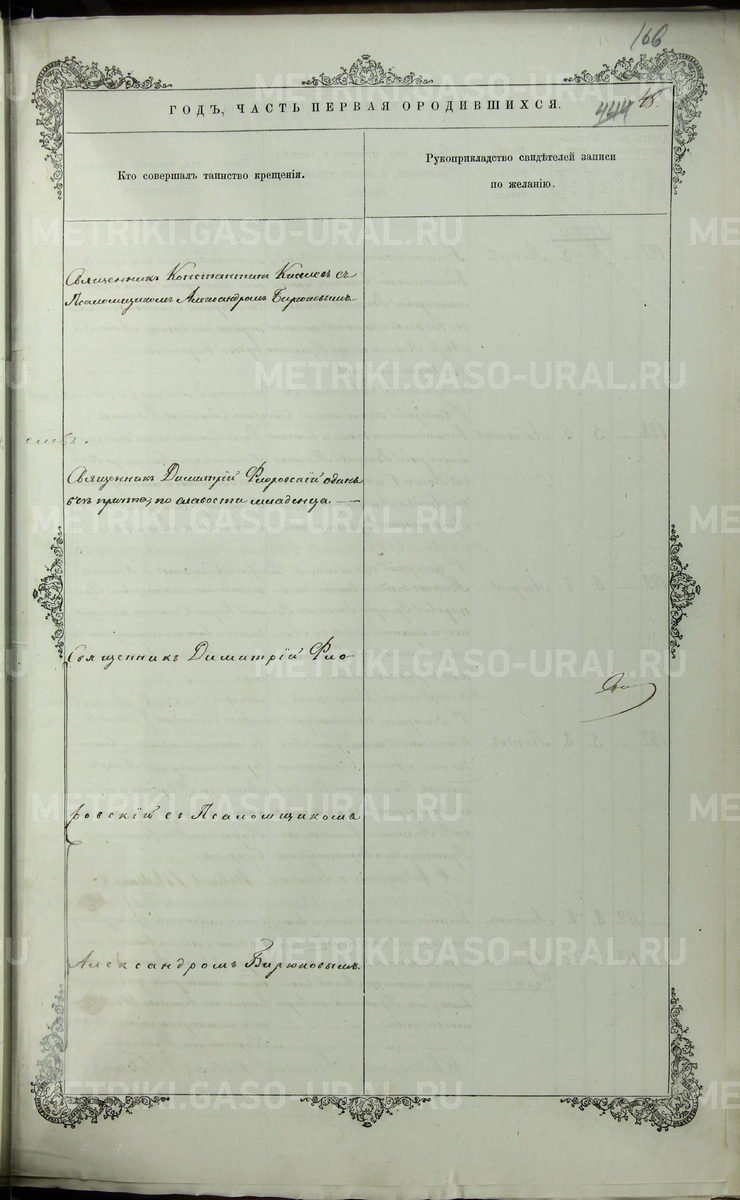 166
444 45.
ГОДЪ, ЧАСТЬ ПЕРВАЯ О РОДИВШИХСЯ.
Кто совершалъ таинство крещенія.
Рукоприкладство свидѣтелей записи
по желанію.
Священникъ Константинъ Киселевъ съ
Псаломщикомъ Александромъ Бирюковымъ
Священникъ Димитрій Флоровскій одинъ
безъ причта, по слабости младенца. —
Священникъ Димитрій Фло
ровскій съ Псаломщикомъ
Александромъ Бирюковымъ.
METRIKI.GASO-URAL.RU